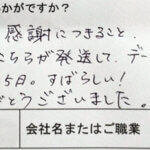 かがですか？
感謝につきること、
こちらが発送して、デー
5日。すばらしい！
どうございました。
会社名またはご職業